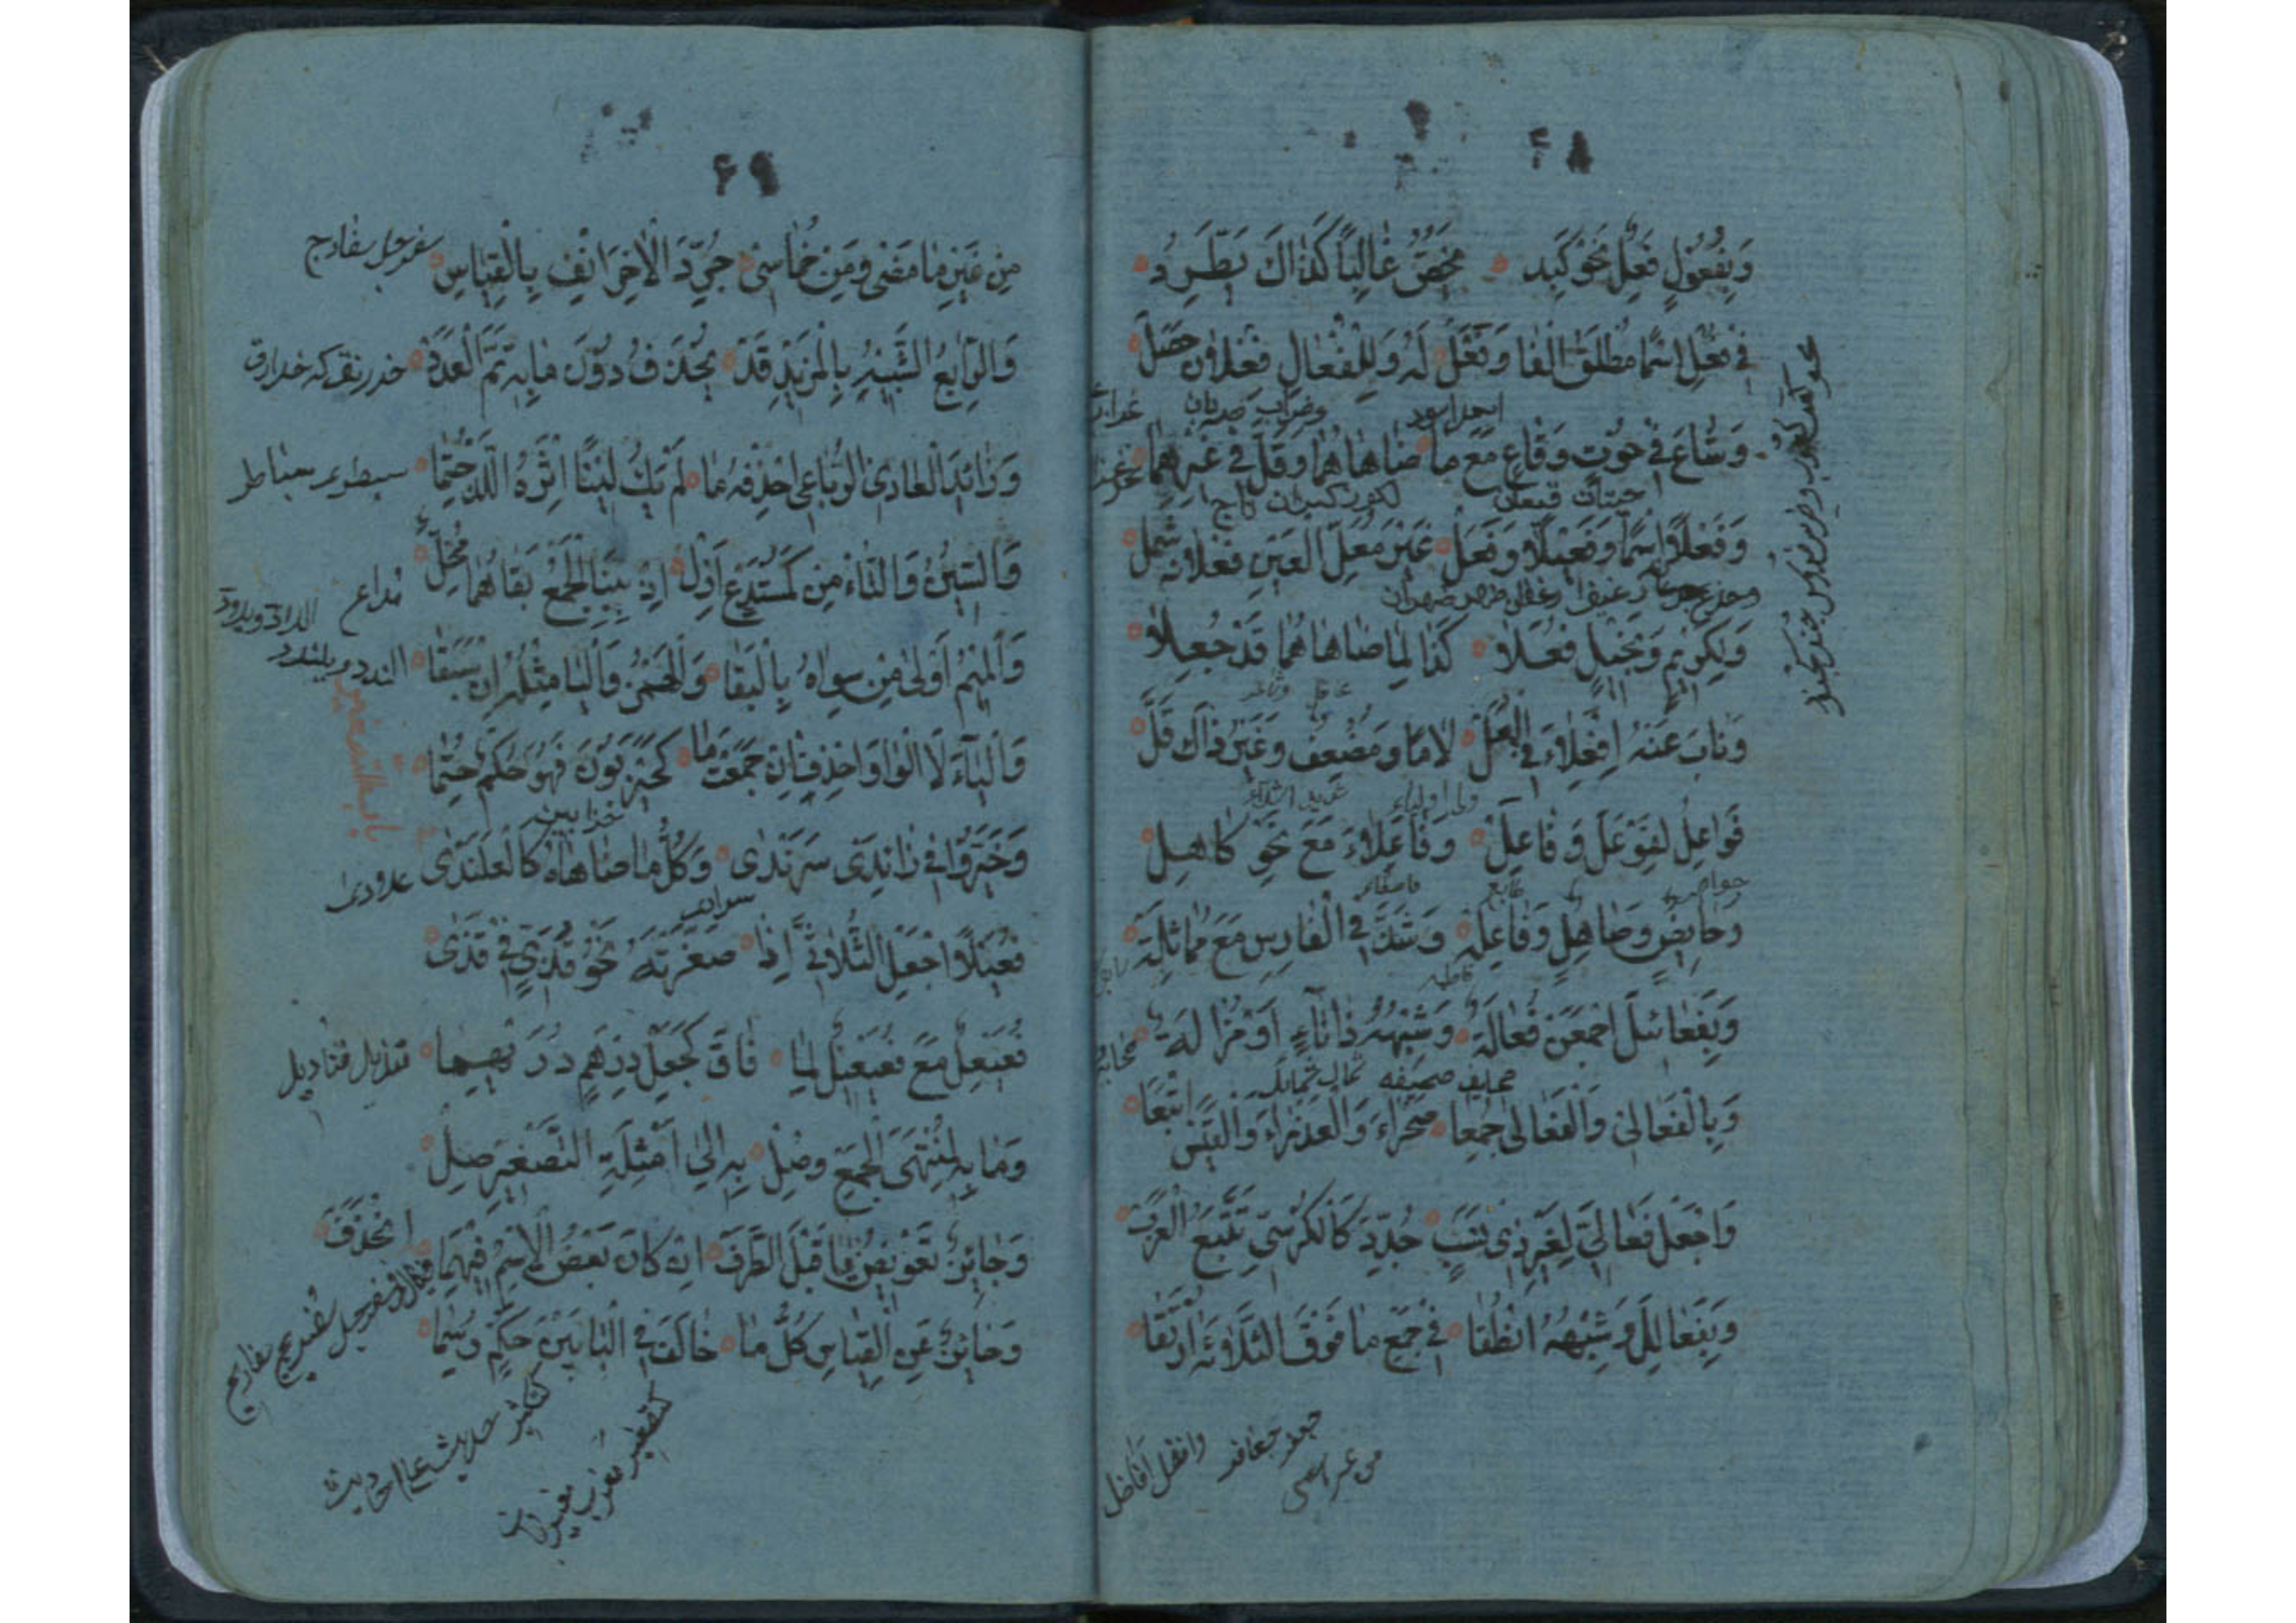 ۶۸
وَبِفُعُوْلٍ فَعِلٌ نَحْوُ كَبِد ۞ يُخَصُّ غَالِبًا كَذَاكَ يَطَّرِدُ
فِي فَعْلٍ اسْمًا مُطْلَقَ الْفَا وَفَعَلْ لَهُ وَلِلْفُعَالِ فِعْلَانٌ حَصَلْ
وَشَاعَ فِي حُوْتٍ وَقَاعٍ مَعَ مَا ضَاهَاهُمَا وَقَلَّ فِي غَيْرِهِمَا
حيتان قيعان
وَفَعْلًا اسْمًا وَفَعِيْلًا وَفَعَلْ غَيْرَ مُعَلِّ الْعَيْنِ فُعْلَانٌ شَمَلْ
وَلِكَرِيْمٍ وَبَخِيْلٍ فُعَلَا كَذَا لِمَا ضَاهَاهُمَا قَدْ جُعِلَا
وَنَابَ عَنْهُ اِفْعِلَاءُ فِي الْمُعَلْ لَامًا وَمُضْعَفٍ وَغَيْرُ ذَاكَ قَلْ
فَوَاعِلُ لِفَوْعَلٍ وَفَاعَلِ وَفَاعِلَاءَ مَعَ نَحْوِ كَاهِلِ
وَحَائِضٍ وَصَاهِلٍ وَفَاعِلَهْ وَشَذَّ فِي الْفَارِسِ مَعَ مَا مَاثَلَهْ
فاطمه
وَبِفَعَائِلَ اجْمَعَنْ فَعَالَهْ وَشِبْهَهُ ذَا تَاءٍ اَوْ مُزَالَهْ
صحايف صحيفه شمال شمائل
وَبِالْفَعَالِيْ وَالْفَعَالَى جُمِعَا صَحْرَاءُ وَالْعَذْرَاءُ وَالْقَيْسَ اتْبَعَا
وَاجْعَلْ فَعَالِيَّ لِغَيْرِ ذِيْ نَسَبْ جُدِّدَ كَالْكُرْسِيِّ تَتْبَعِ الْعَرَبْ
وَبِفَعَالِلَ وَشِبْهِهِ انْطِقَا فِي جَمْعِ مَا فَوْقَ الثَّلَاثَةِ ارْتَقَى
جعفر جعافر وافضل افاضل
۶۹
مِنْ غَيْرِ مَا مَضَى وَمِنْ خُمَاسِيْ جُرِّدَ الْاٰخِرَ انْفِ بِالْقِيَاسِ سفرجل سفارج
وَالرَّابِعُ الشَّبِيْهُ بِالْمَزِيْدِ قَدْ يُحْذَفُ دُوْنَ مَا بِهِ تَمَّ الْعَدَدْ خدرنق كه خدارق
وَزَائِدَ الْعَادِي الرُّبَاعِيْ احْذِفْهُ مَا لَمْ يَكُ لَيْنًا اِثْرَهُ اللَّذْ خَتَمَا سبطرى سباطر
وَالسِّيْنَ وَالتَّاءَ مِنْ كَمُسْتَدْعٍ اَزِلْ اِذْ بِبِنَا الْجَمْعِ بَقَاهُمَا مُخِلْ مداع
وَالْمِيْمُ اَوْلَى مِنْ سِوَاهُ بِالْبَقَا وَالْهَمْزُ وَالْيَا مِثْلُهُ اِنْ سَبَقَا الندد ويلندد
وَالْيَاءَ لَا الْوَاوَ احْذِفْ اِنْ جَمَعْتَ مَا كَحَيْزَبُوْنَ فَهُوَ حُكْمٌ حُتِمَا
حزابين
وَخَيَّرُوْا فِي زَائِدَيْ سَرَنْدَى وَكُلِّ مَا ضَاهَاهُ كَالْعَلَنْدَى
باب التصغير
فُعَيْلًا اجْعَلِ الثُّلَاثِيَّ اِذَا صَغَّرْتَهُ نَحْوُ قُذَيٍّ فِي قَذَى
فُعَيْعِلٌ مَعَ فُعَيْعِيْلٍ لِمَا فَاقَ كَجَعْلِ دِرْهَمٍ دُرَيْهِمَا
وَمَا بِهِ لِمُنْتَهَى الْجَمْعِ وُصِلْ بِهِ اِلَى اَمْثِلَةِ التَّصْغِيْرِ صِلْ
وَجَائِزٌ تَعْوِيْضُ يَا قَبْلَ الطَّرَفْ اِنْ كَانَ بَعْضُ الْاِسْمِ فِيْهِمَا انْحَذَفْ
وَحَائِدٌ عَنِ الْقِيَاسِ كُلُّ مَا خَالَفَ فِي الْبَابَيْنِ حُكْمًا رُسِمَا